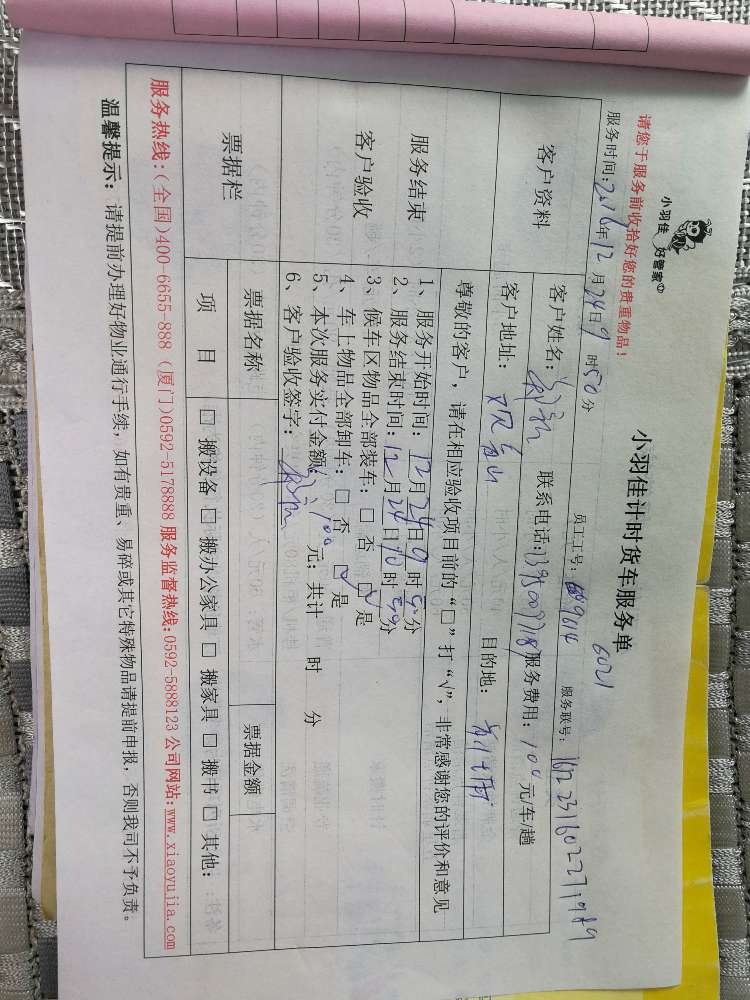 小羽佳 好管家
小羽佳计时货车服务单
6021
请您于服务前收拾好您的贵重物品！
服务时间：2016年12月24日9时50分 员工工号： 服务联号：
客户资料
客户姓名： 联系电话： 服务费用：100元/车/趟
客户地址： 目的地：
尊敬的客户，请在相应验收项目前的“□”打“√”，非常感谢您的评价和意见
服务结束
客户验收
1、服务开始时间：12月24日9时50分
2、服务结束时间：12月24日10时50分
3、候车区物品全部装车：□ 否 ☑ 是
4、车上物品全部卸车：□ 否 ☑ 是
5、本次服务实付金额：100元；共计 时 分
6、客户验收签字：
票据栏
票据名称 票据金额
项 目 □ 搬设备 □ 搬办公家具 □ 搬家具 □ 搬书 □ 其他：
服务热线：(全国)400-6655-888 (厦门)0592-5178888 服务监督热线：0592-5888123 公司网站：www.xiaoyujia.com
温馨提示：请提前办理好物业通行手续，如有贵重、易碎或其它特殊物品请提前申报，否则我司不予负责。